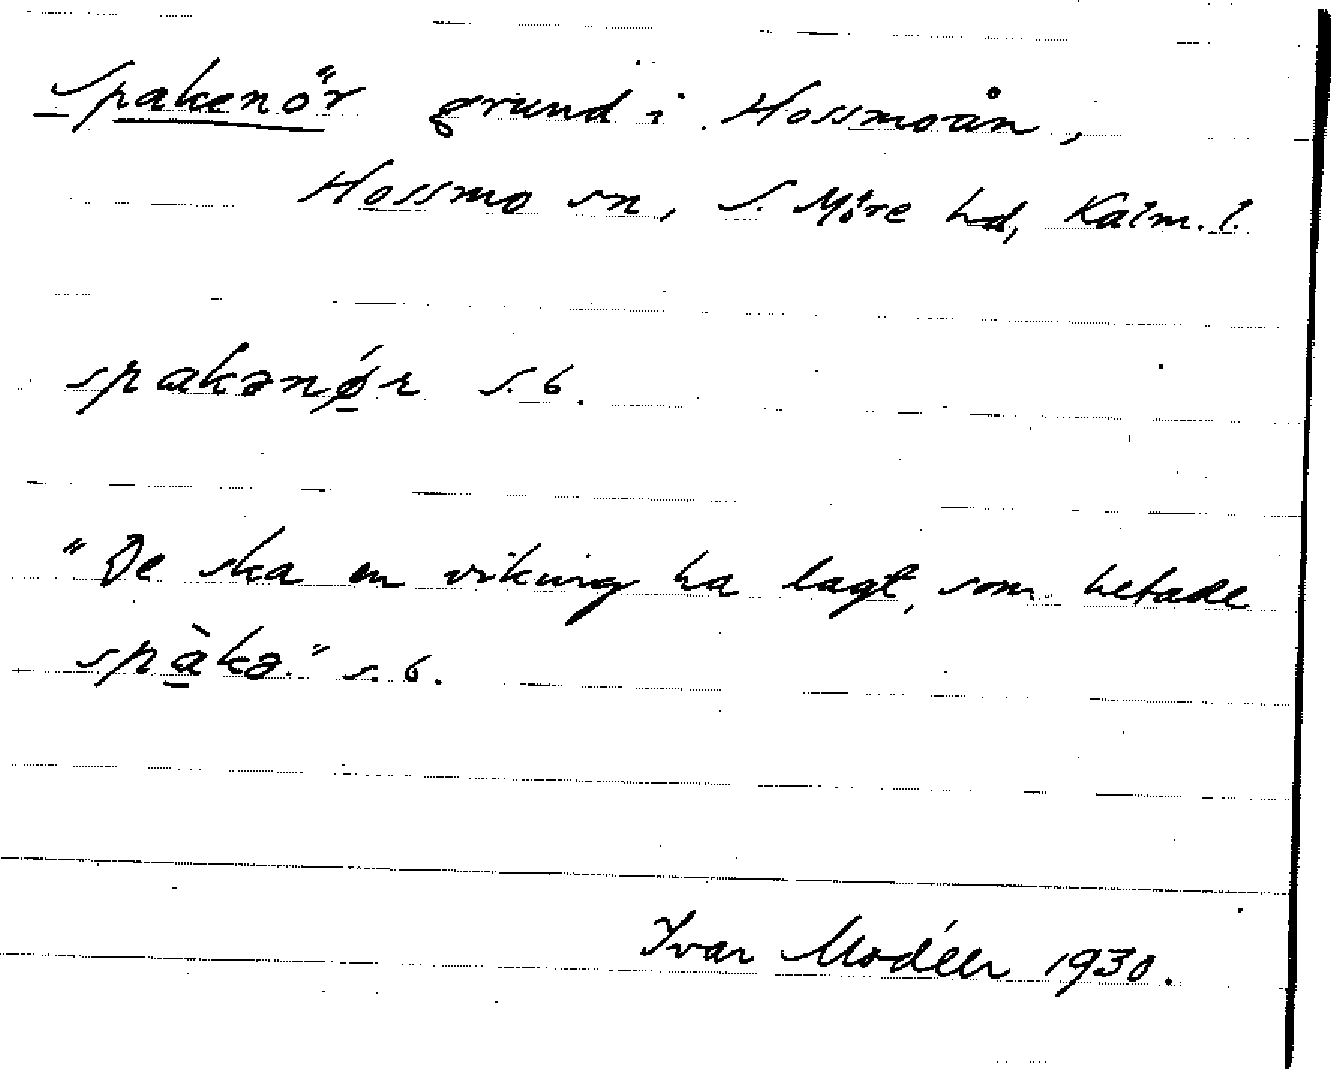 Spakenör grund i Hossmoån,
Hossmo sn, S. Möre hd, Kalm. l.
spakənǿ̱r s. b.
"De ska en viking ha lagt, som hetade
spà̱kə." s. b.
Ivar Modéer 1930.